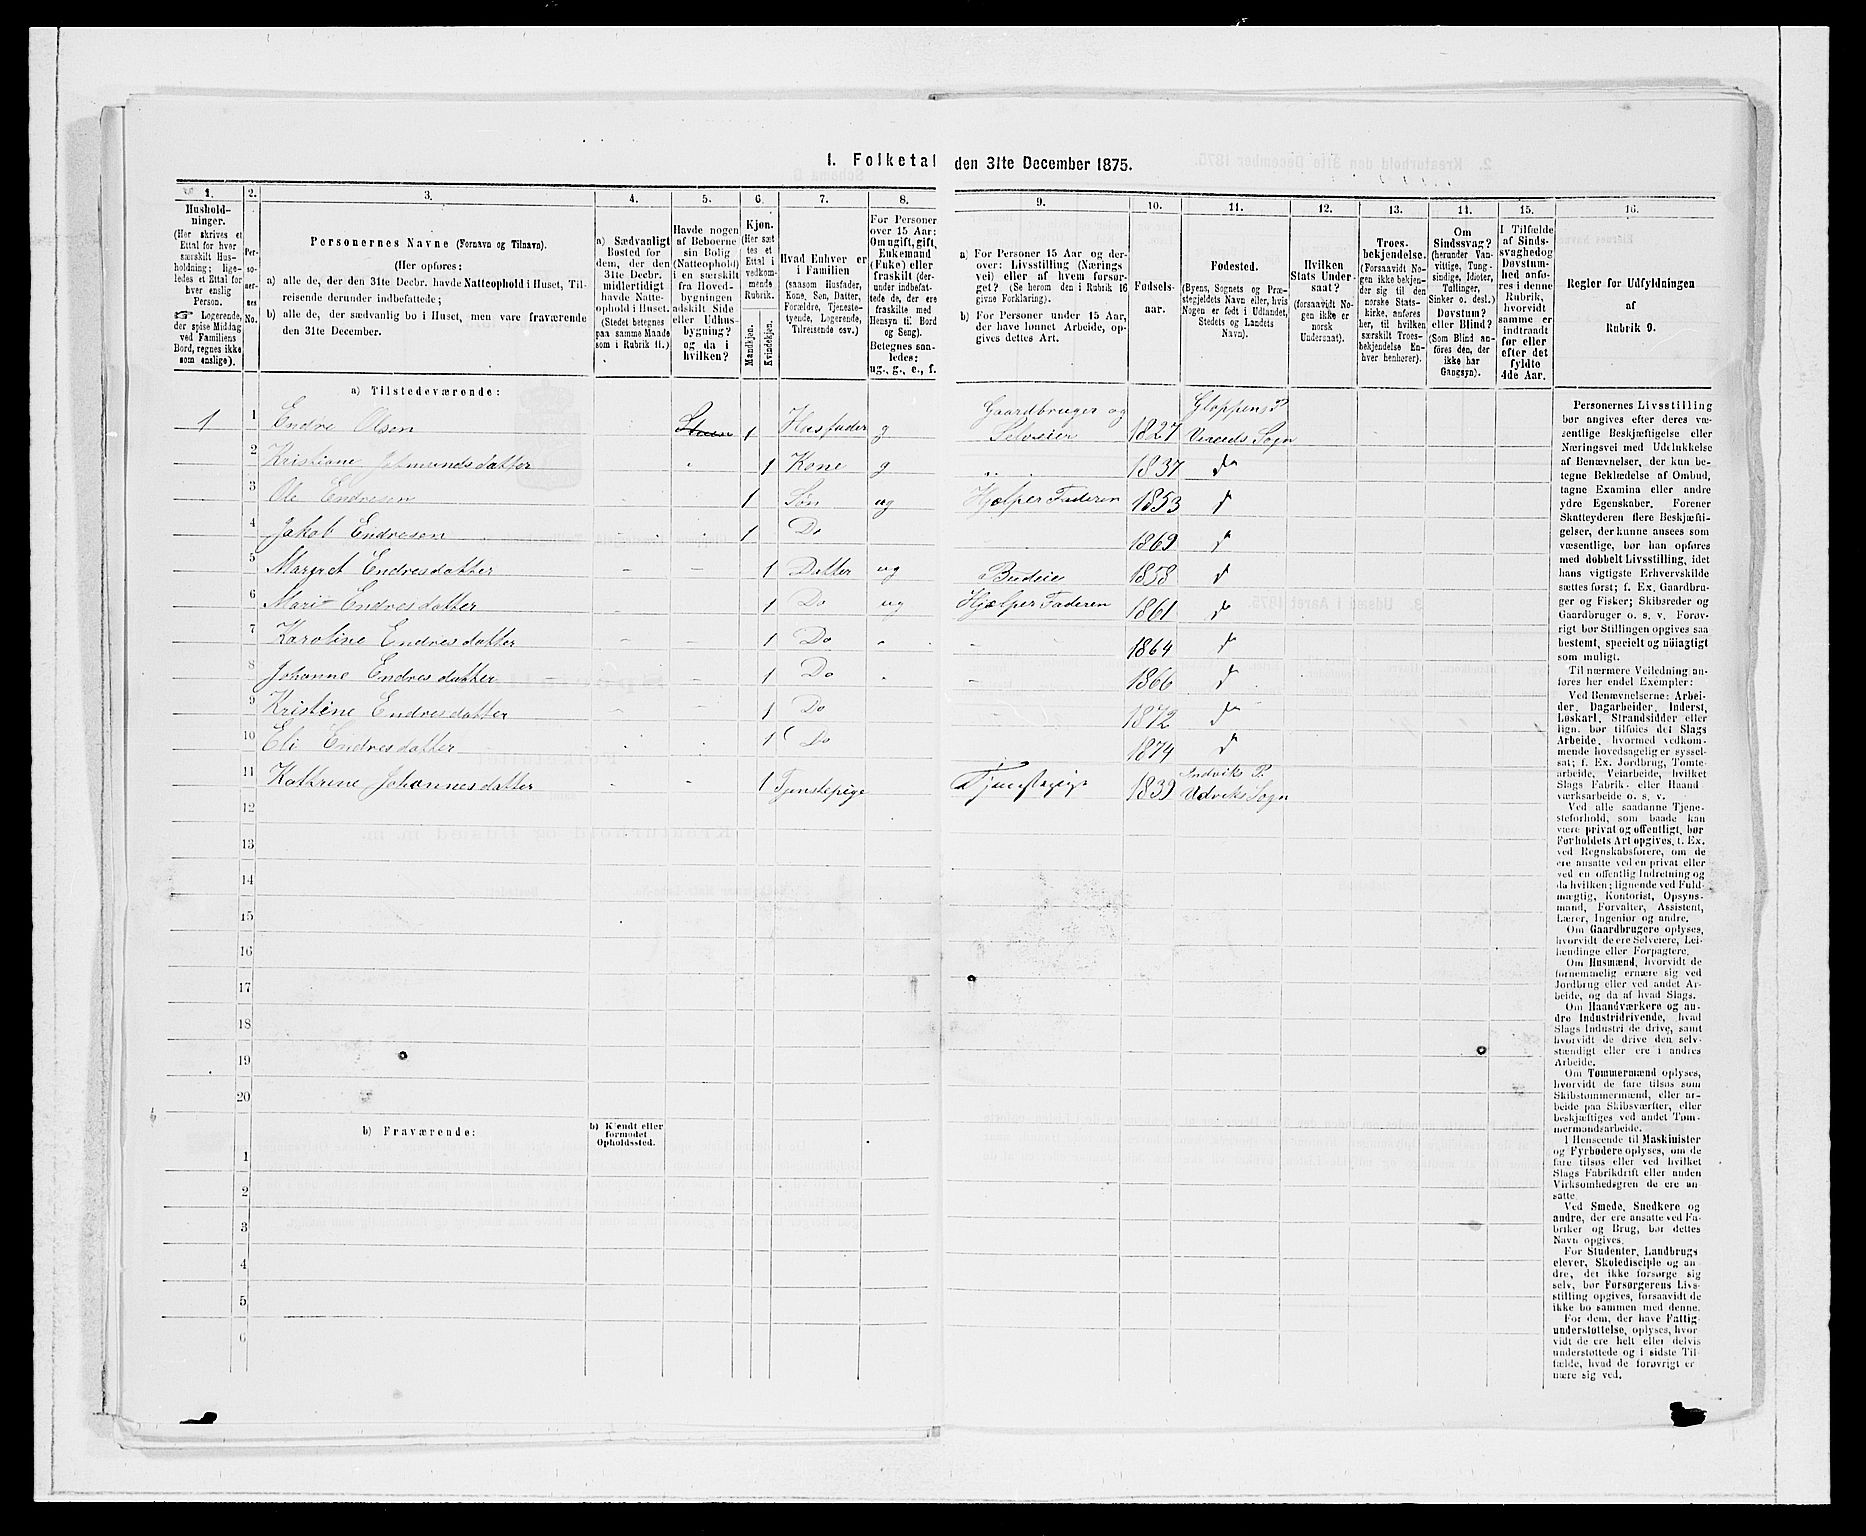 1. Folketal den 31te December 1875.
1.
Hushold-
ninger.
(Her skrives et
Ettal for hver
særskilt Hus-
holdning; lige-
ledes et Ettal for
hver enslig
Person.
☞ Logerende,
der spise Middag
ved Familiens
Bord, regnes ikke
som enslige).
2.
Per-
so-
ner-
nes
No.
3.
Personernes Navne (Fornavn og Tilnavn).
(Her opføres:
a) alle de, der den 31te Decbr. havde Natteophold i Huset, Til-
reisende derunder indbefattede;
b) alle de, der sædvanlig bo i Huset, men vare fraværende
den 31te December.
4.
a) Sædvanligt
Bosted for
dem, der den
31te Decbr.
midlertidigt
havde Natte-
ophold i Huset.
(Stedet betegnes
paa samme Maade
som i Rubrik 11.)
5.
Havde nogen
af Beboerne
sin Bolig
(Natteophold)
i en særskilt
fra Hoved-
bygningen
adskilt Side
eller Udhus-
bygning?
og da i
hvilken?
6.
Kjøn.
(Her sæt
tes et
Ettal i
vedkom-
mende
Rubrik.
Mandkjøn.
Kvindekjøn.
7.
Hvad Enhver er
i Familien
(saasom Husfader,
Kone, Søn, Datter,
Forældre, Tjeneste-
tyende, Logerende,
Tilreisende osv.)
8.
For Personer
over 15 Aar:
Om ugift, gift,
Enkemand
(Enke) eller
fraskilt (der-
under indbefat-
tede de, der ere
fraskilte med
Hensyn til Bord
og Seng).
Betegnes saa-
ledes:
ug., g., e., f.
9.
a) For Personer 15 Aar og der-
over: Livsstilling (Nærings
vei) eller af hvem forsør-
get? (Se herom den i Rubrik 16
givne Forklaring).
b) For Personer under 15 Aar,
der have lønnet Arbeide, op-
gives dettes Art.
10.
Fødsels-
aar.
11.
Fødested.
(Byens, Sognets og Præ-
stegjeldets Navn eller, hvis
Nogen er født i Udlandet,
Stedets og Landets
Navn).
12.
Hvilken
Stats Under-
saat?
(forsaavidt No-
gen ikke er
norsk
Undersaat).
13.
Troes-
bekjendelse.
(Forsaavidt No-
gen ikke bekjen-
der sig til den
norske Stats-
kirke, anføres
her, til hvilken
særskilt Troes-
bekjendelse En-
hver henhører).
14.
Om
Sindssvag?
(herunder Van-
vittige, Tung-
sindige, Idioter,
Tullinger,
Sinker o. desl.)
Døvstum?
eller Blind?
(Som Blind an-
føres den, der
ikke har
Gangsyn).
15.
I Tilfælde
af Sinds-
svaghed og
Døvstum-
hed anfø-
res i denne
Rubrik,
hvorvidt
samme er
indtraadt
før eller
efter det
fyldte
4de Aar.
16.
Regler for Udfyldningen
af
Rubrik 9.
a) Tilstedeværende:
1 1 Endre Olsen 1 Husfader g Gaardbruger og Selveier 1827 Gloppens P.
2 Kristiane 1 Kone g „ 1837 do
3 Ole Endresen 1 Søn ug Hjælper Faderen 1853 d
4 Jakob Endresen 1 Do 1869 d
5 Margret Endresdatter 1 Datter ug Budeie 1858 d
6 Marit Endresdatter 1 Do ug Hjælper Faderen 1861 do
7 Karoline Endresdatter 1 Do 1864 d
8 Johanne Endresdatter 1 Do 1866 d
9 Kristine Endresdatter 1 Do 1872 do
10 Eli Endresdatter 1 Do 1874 d
11 Kathrine Johannesdatter 1 Tjenstepige Tjenstepige 1839 Indviks P. Udviks Sogn
12
13
14
15
16
17
18
19
20
b) Fraværende:
b) Kjendt eller
formodet
Opholdssted.
1
2
3
4
5
6
Personernes Livsstilling
bør angives efter deres væ-
sentlige Beskjæftigelse eller
Næringsvei med Udelukkelse
af Benævnelser, der kun be-
tegne Beklædelse af Ombud,
tagne Examina eller andre
ydre Egenskaber. Forener
Skatteyderen flere Beskjæfti-
gelser, der kunne ansees som
væsentlige, bør han opføres
med dobbelt Livsstilling, idet
hans vigtigste Erhvervskilde
sættes først; f. Ex. Gaardbru-
ger og Fisker; Skibsreder og
Gaardbruger o. s. v. Forøv-
rigt bør Stillingen opgives saa
bestemt, specielt og nøiagtigt
som muligt.
Til nærmere Veiledning an-
føres her endel Exempler:
Ved Benævnelserne: Arbei-
der, Dagarbeider, Inderst,
Løskarl, Strandsidder eller
lign. bør tilføies det Slags
Arbeide, hvormed vedkom-
mende hovedsagelig er syssel-
sat; f. Ex. Jordbrug, Tomte-
arbeide, Veiarbeide, hvilket
Slags Fabrik- eller Haand
værksarbeide o. s. v.
Ved alle saadanne Tjene-
steforhold, som baade kan
være privat og offentligt, bør
Forholdets Art opgives, f. Ex.
ved Regnskabsførere, om de
ere ansatte ved en privat eller
ved en offentlig Indretning og
da hvilken; lignende ved Fuld-
mægtig, Kontorist, Opsyns-
mand, Forvalter, Assistent,
Lærer, Ingeniør og andre.
Om Gaardbrugere oplyses,
hvorvidt de ere Selveiere, Lei-
lændinge eller Forpagtere.
Om Husmænd, hvorvidt de
fornemmelig ernære sig ved
Jordbrug eller ved andet Ar-
beide, og da af hvad Slags.
Om Haandværkere og an-
dre Industridrivende, hvad
Slags Industri de drive, samt
hvorvidt de drive den selv-
stændigt eller ere i andres
Arbeide.
Om Tømmermænd oplyses,
hvorvidt de fare tilsøs som
Skibstømmermænd, eller ar-
beide paa Skibsværfter, eller
beskjæftiges ved andet Tøm-
mermandsarbeide.
I Henseende til Maskinister
og Fyrbødere oplyses, om de
fare tilsøs eller ved hvilket
Slags Fabrikdrift eller anden
Virksomhedsgren de ere an-
satte.
Ved Smede, Snedkere og
andre, der ere ansatte ved Fa-
briker og Brug, bør dettes
Navn opgives.
For Studenter, Landbrugs
elever, Skoledisciple og an-
dre, der ikke forsørge sig
selv, bør Forsørgerens Livs-
stilling opgives, forsaavidt de
ikke bo sammen med denne.
For dem, der have Fattig-
understøttelse, oplyses, hvor
vidt de ere helt eller delvis
understøttede og i sidste Til-
fælde, hvad de forøvrigt er
nære sig ved.